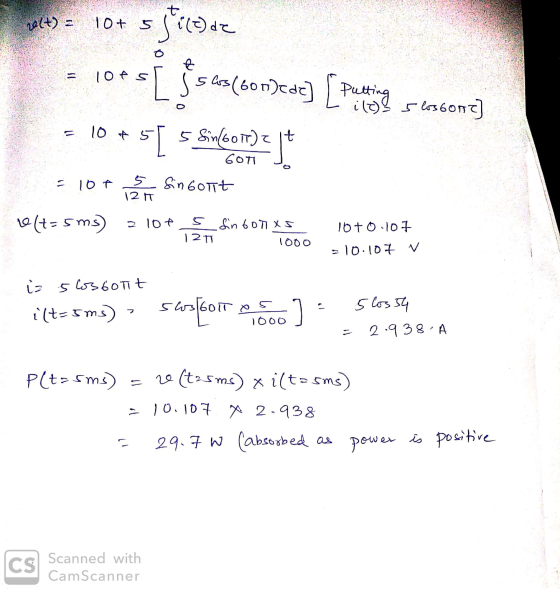 v(t) = 10 + 5 ∫₀ᵗ i(τ) dτ
= 10 + 5 [ ∫₀ᵗ 5 cos(60π)τ dτ ] [ Putting i(τ) = 5 cos60πτ ]
= 10 + 5 [ 5 Sin(60π)τ / 60π ]₀ᵗ
= 10 + 5/12π Sin 60πt
v(t=5ms) = 10 + 5/12π Sin 60π × 5/1000 10+0.107
= 10.107 V
i = 5 cos60πt
i(t=5ms) = 5 cos[60π × 5/1000] = 5 cos 54
= 2.938 A
P(t=5ms) = v(t=5ms) × i(t=5ms)
= 10.107 × 2.938
= 29.7 W (absorbed as power is positive
CS Scanned with
CamScanner